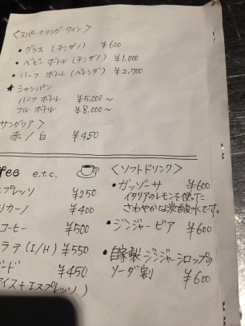 <スパークリングワイン>
・グラス (チンザノ) ¥600
・ベビーボトル (チンザノ) ¥1,000
・ハーフボトル ¥2,700
★シャンパン
ハーフボトル ¥5,000〜
フルボトル ¥8,000〜
サングリア>
赤/白 ¥450
ffee e.t.c.
エスプレッソ ¥250
リカーノ ¥400
コーヒー ¥500
ラテ(I/H) ¥550
ード ¥450
アイス+エスプレッソ)
<ソフトドリンク>
・ガッゾーサ ¥600
イタリアのレモンを使った
さわやかな炭酸水です。
・ジンジャービア ¥600
・自家製ジンジャーシロップの
ソーダ割 ¥600